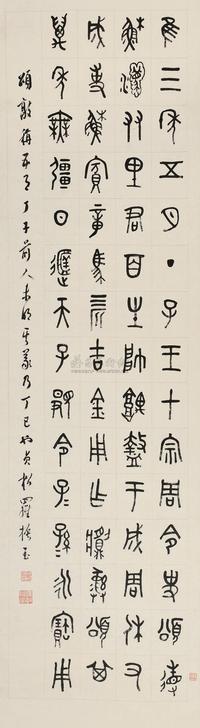 隹三年五月丁子王才宗周令史頌省
蘇友里君百生帥堣盩于成周休又
成事蘇賓章馬四匹吉金用乍䵼彝頌其
萬年無疆日遟天子顯令子孫永寶用
頌敦五月丁子前人未明其義乃丁巳也貞松羅振玉